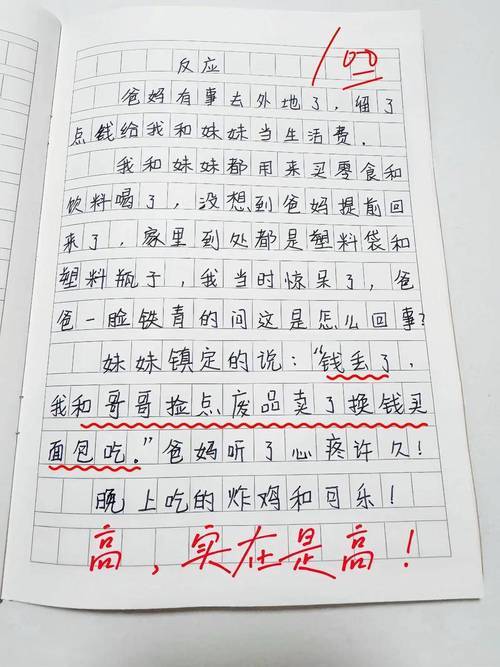 反应
100
爸妈有事去外地了，留了
点钱给我和妹妹当生活费．
我和妹妹都用来买零食和
饮料喝了，没想到爸妈提前回
来了，家里到处都是塑料袋和
塑料瓶子，我当时惊呆了，爸
爸一脸铁青的问这是怎么回事？
妹妹镇定的说：“钱丢了，
我和哥哥捡点废品卖了换钱买
面包吃．”爸妈听了心疼许久！
晚上吃的炸鸡和可乐！
高，实在是高！